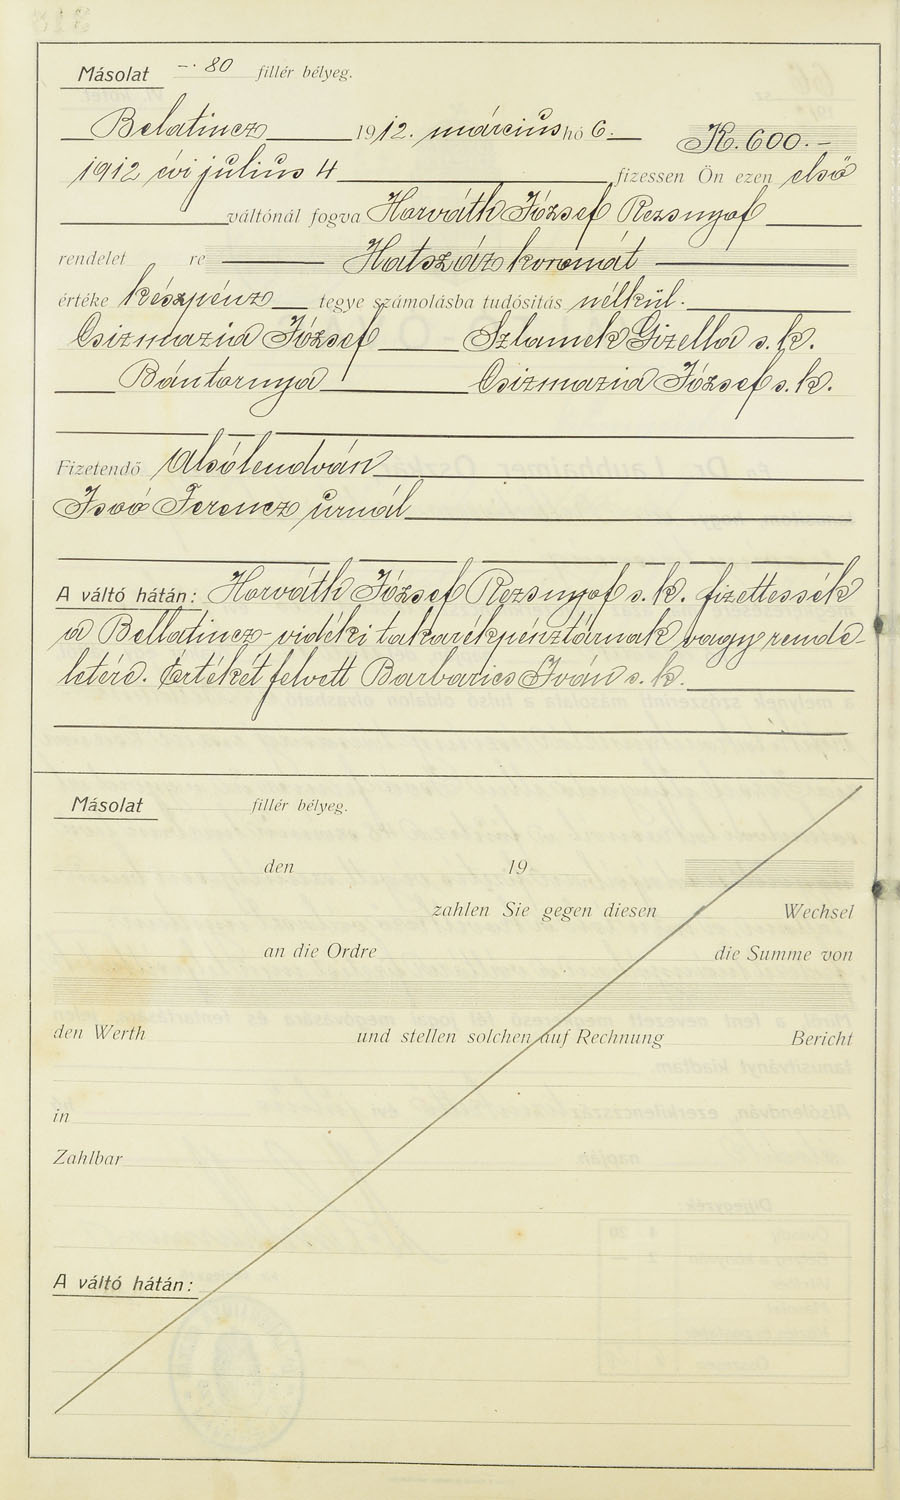 Másolat —· 80 fillér bélyeg.
Belatincz 1912. március hó 6.
K. 600.—
1912 évi július 4 fizessen Ön ezen első
váltónál fogva Horváth József Rezsnyof
rendelet re Hatszáz koronát
értéke készpénz tegye számolásba tudósítás nélkül.
Csizmazia József Szlamek Gizella s. k.
Bántornya Csizmazia József s. k.
Fizetendő Alsólendván
Ivoó Ferencz úrnál
A váltó hátán: Horváth József Rezsnyof s. k. fizettessék
a Bellatincz-vidéki takarékpénztárnak vagy rende-
letére. Értékét felvett Barbarics Iván s. k.
Másolat fillér bélyeg.
den 19
zahlen Sie gegen diesen Wechsel
an die Ordre die Summe von
den Werth und stellen solchen auf Rechnung Bericht
in
Zahlbar
A váltó hátán: